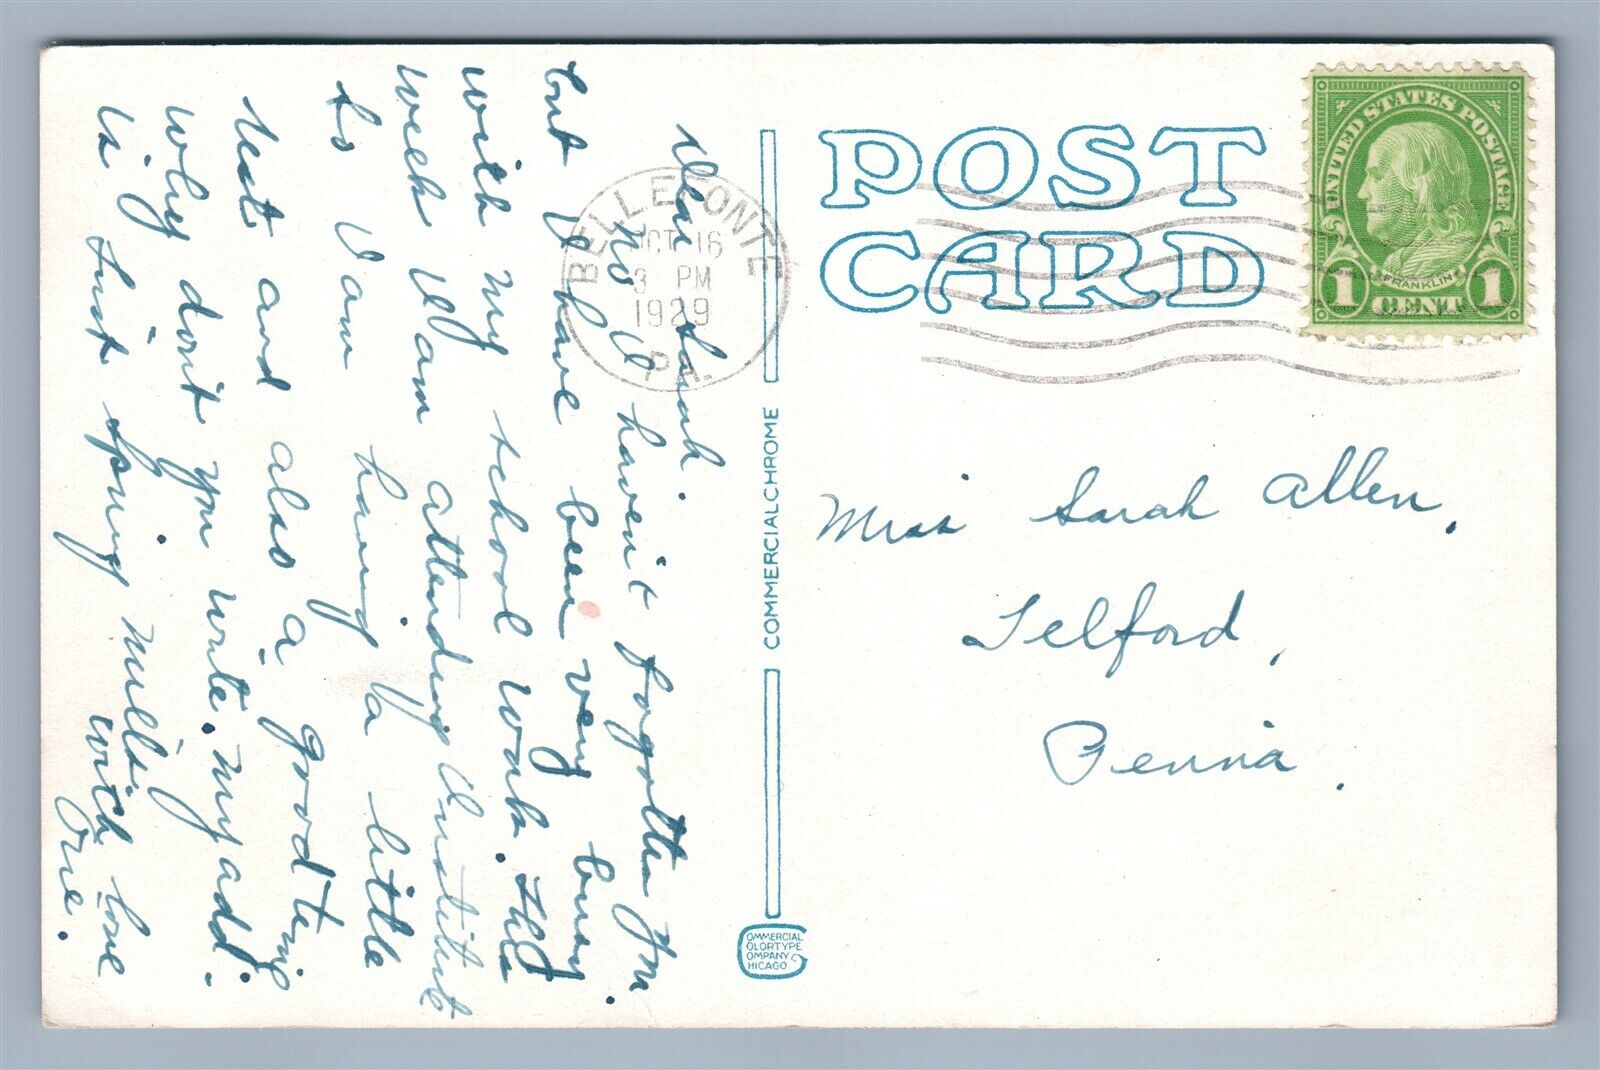 Dear Sarah.
No I haven't forgotten you
but I have been very busy
with my school work. This
week I am attending Institute
so I am having a little
rest and also a good time
why don't you write. My add.
is just Spring Mills.
with love
POST
CARD
COMMERCIALCHROME
COMMERCIAL
COLORTYPE
COMPANY
CHICAGO
BELLEFONTE
OCT 16
3 PM
1929
PA.
UNITED STATES POSTAGE
FRANKLIN
1 CENT 1
Miss Sarah Allen,
Telford,
Penna.